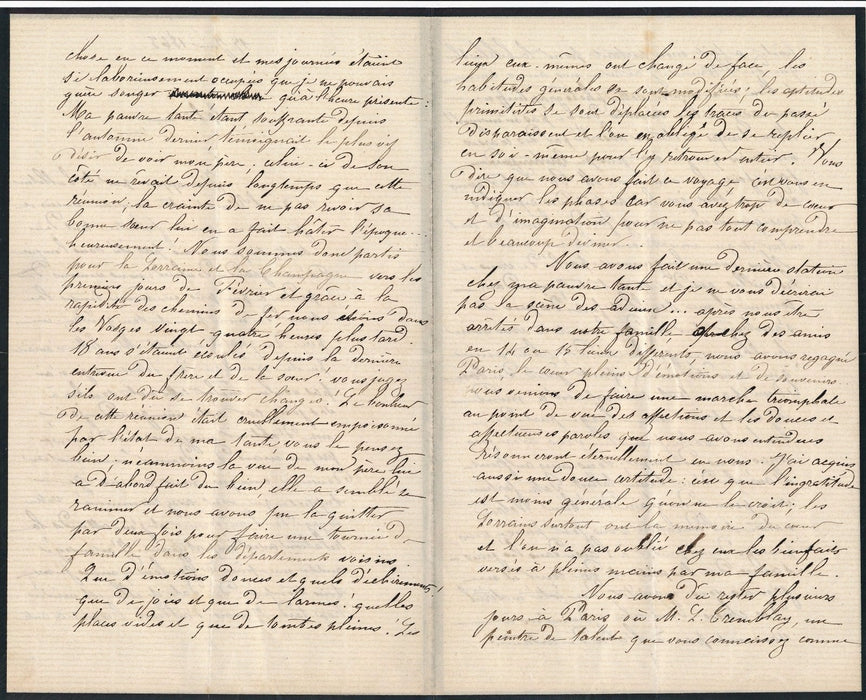 chose en ce moment et mes journées étaient
si laborieusement occupées que je ne pouvais
guère songer qu'à l'heure présente :
Ma pauvre tante étant souffrante depuis
l'automne dernier témoignait le plus vif
désir de voir mon père ; celui-ci de son
côté ne rêvait depuis longtemps que cette
réunion ; la crainte de ne pas revoir sa
bonne sœur lui en a fait hâter l'époque...
heureusement ! Nous sommes donc partis
pour la Lorraine et la Champagne vers les
premiers jours de Février et grâce à la
rapidité des chemins de fer nous étions dans
les Vosges vingt quatre heures plus tard.
18 ans s'étaient écoulés depuis la dernière
entrevue du frère et de la sœur ! vous jugez
s'ils ont dû se trouver changés ! Le bonheur
de cette réunion était cruellement empoisonné
par l'état de ma tante vous le pensez
bien ; néanmoins la vue de mon père lui
a d'abord fait du bien elle a semblé se
ranimer et nous avons pu la quitter
par deux fois pour faire une tournée de
famille dans les départements voisins.
Que d'émotions douces et quels déchirements !
que de joies et que de larmes ! quelles
places vides et que de tombes pleines ! Les
lieux eux-mêmes ont changé de face, les
habitudes générales se sont modifiées ; les aptitudes
primitives se sont déplacées les traces du passé
disparaissent et l'on est obligé de se replier
en soi-même pour l'y retrouver entier. Vous
dire que nous avons fait ce voyage c'est vous en
indiquer les phases car vous avez trop de cœur
et d'imagination pour ne pas tout comprendre
et beaucoup deviner.
Nous avons fait une dernière station
chez ma pauvre tante et je ne vous décrirai
pas la scène des adieux... après nous être
arrêtés dans notre famille, chez des amis
en 14 ou 15 lieux différents, nous avons regagné
Paris le cœur pleins d'émotions et de souvenirs
nous venions de faire une marche triomphale
au point de vue des affections et les douces et
affectueuses paroles que nous avons entendues
résonneront éternellement en nous. J'ai acquis
aussi une douce certitude : c'est que l'ingratitude
est moins générale qu'on ne le croit ; les
Lorrains surtout ont la mémoire du cœur
et l'on n'a pas oublié chez eux les bienfaits
versés à pleines mains par ma famille.
Nous avons dû rester plusieurs
jours à Paris où M. L. Tremblay, un
peintre de talent que vous connaissez comme